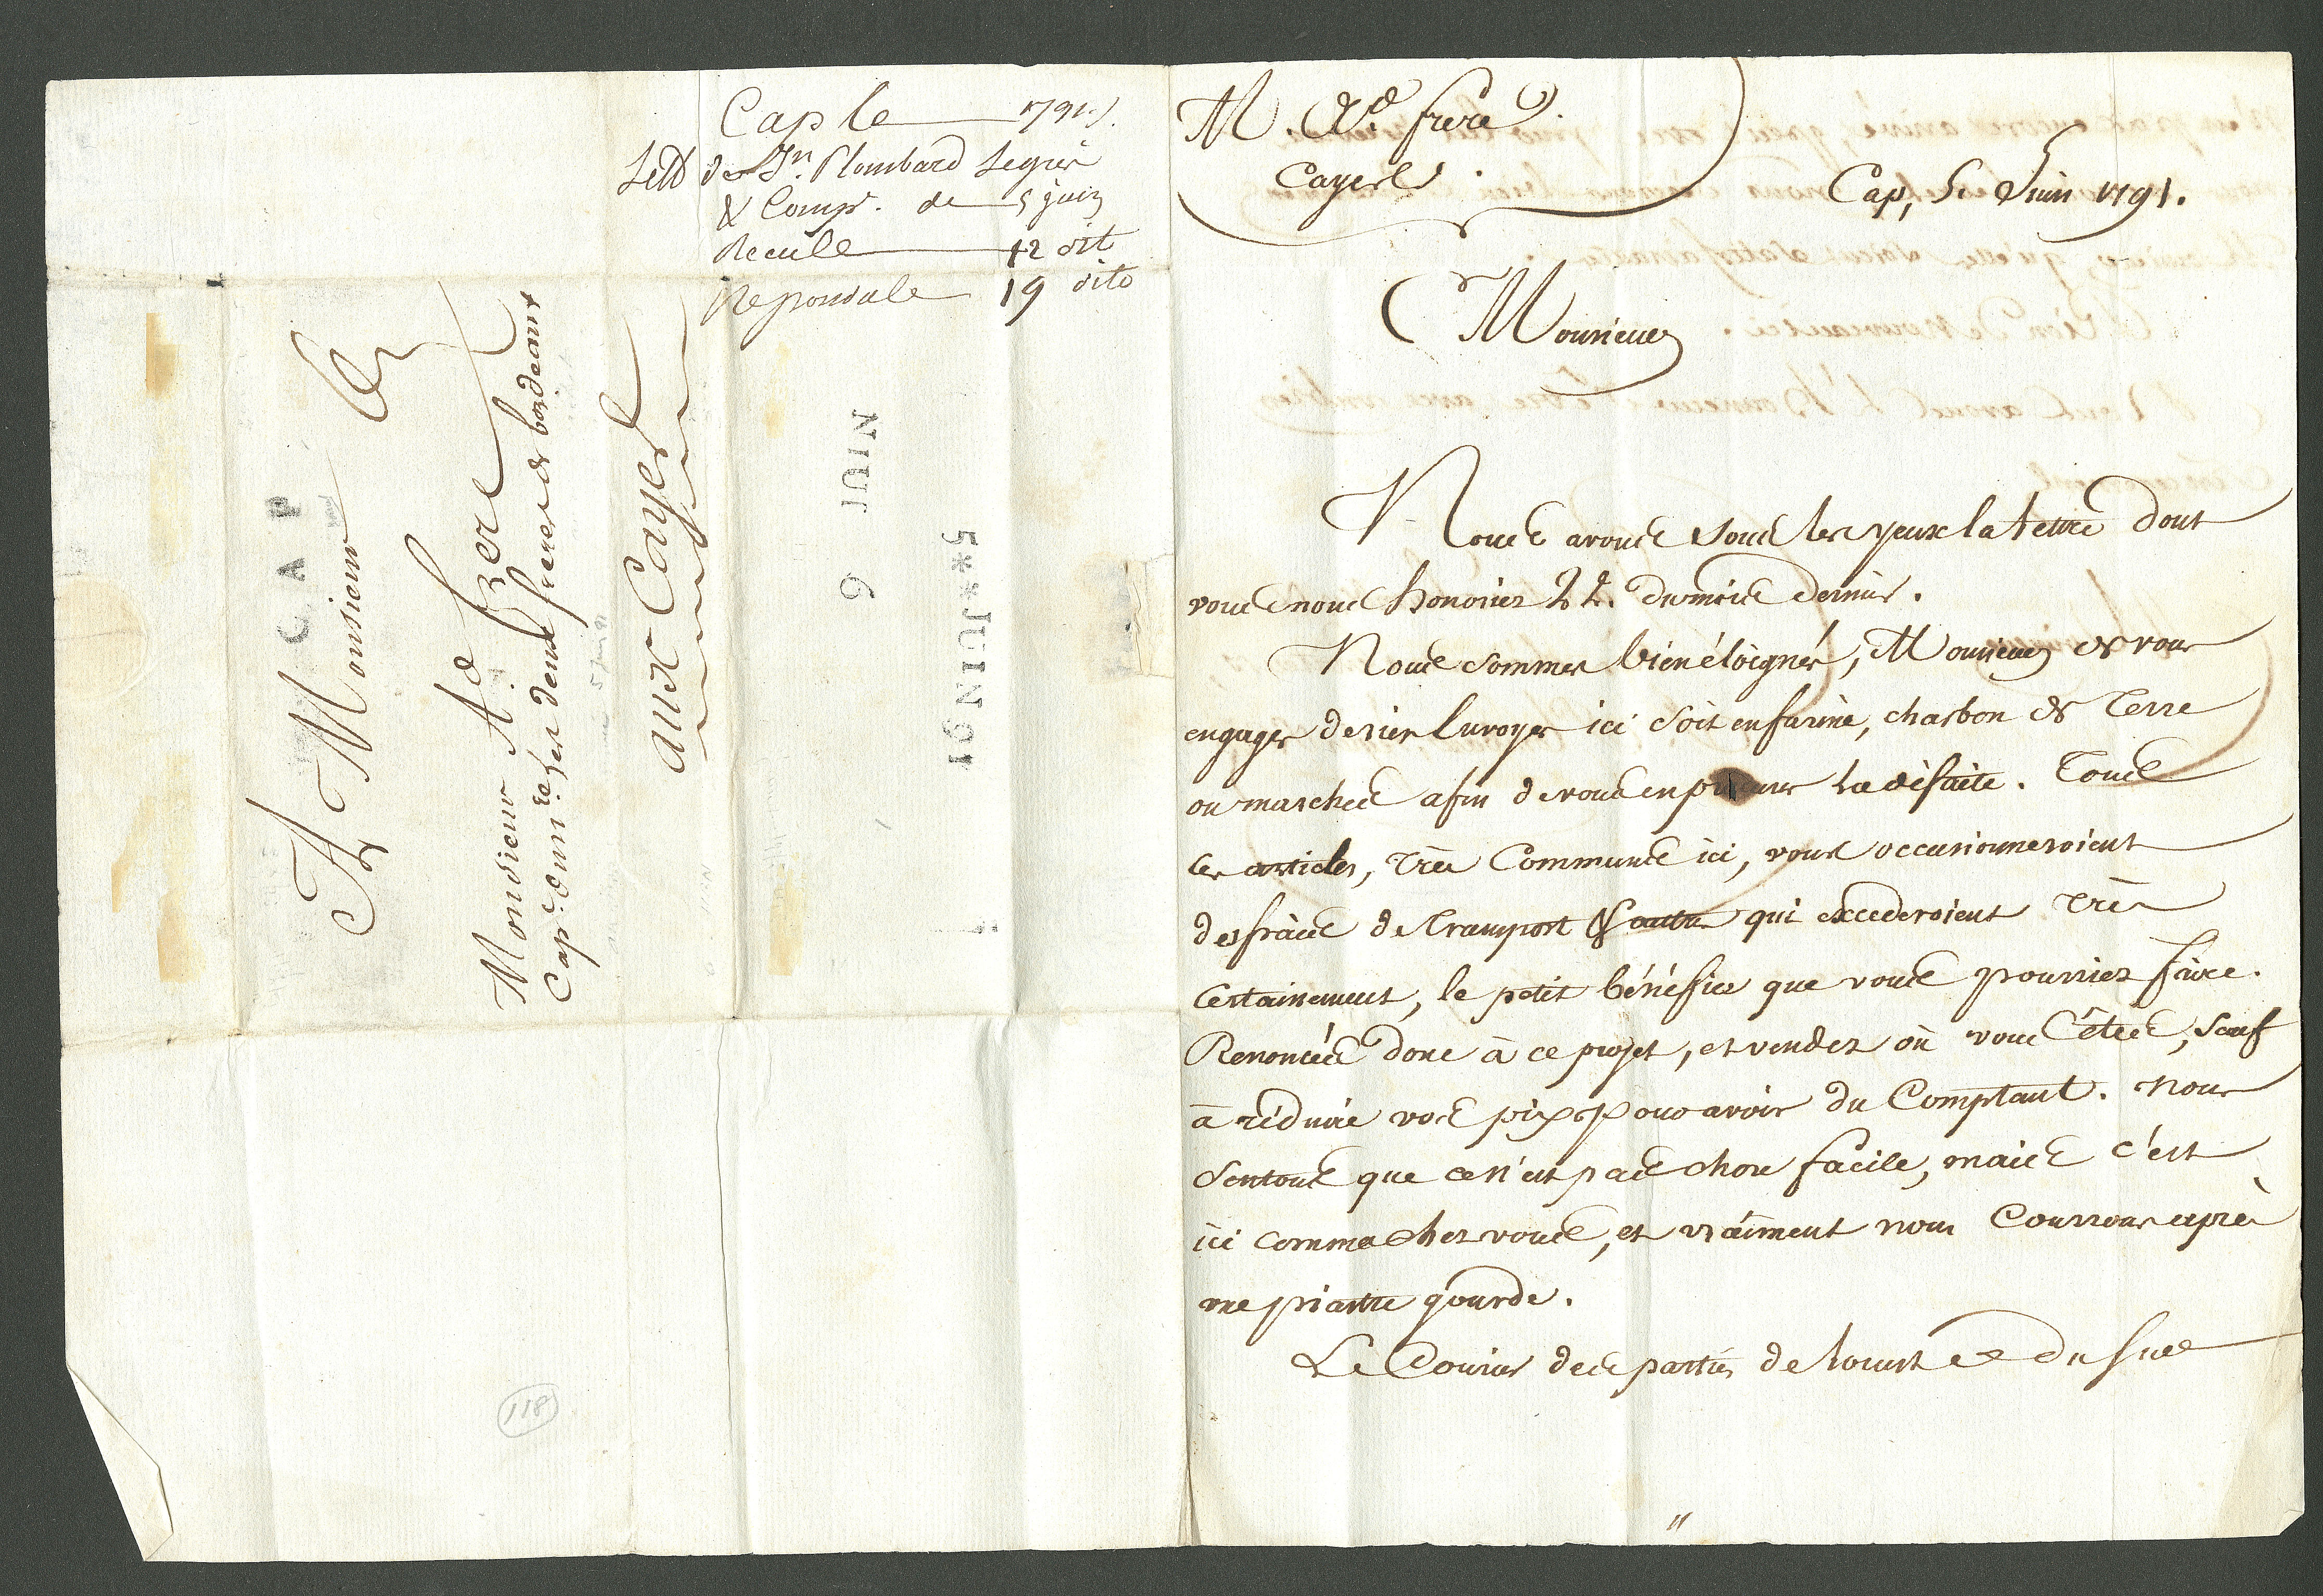 Cap le 1791
Lett de Jn. Plombard Legris
& Compe. de 5 juin
Recule 12 dit
Repondule 19 dito
A Monsieur
Monsieur Ad frere
Cape. Comm. re les deux freres de bordeaux
aux Cayes
CAP
9 JUIN
5**JUIN91
118
M. Ad. frere
Cayes
Cap, 5. Juin 1791.
Monsieur
Nous avons sous les yeux la Lettre dont
vous nous honoriez du mois dernier.
Nous sommes bien éloignés, Monsieur de vous
engager de rien Envoyer ici soit en farine, charbon de Terre
ou marchse afin de vous en procurer la défaite. Tous
ces articles, très Communs ici, vous occasionneroient
des fraiis de Transport & autres qui excederoient Très
Certainement, le petit bénéffice que vous pourriez faire.
Renoncés donc à ce projet, et vendez où vous êtes, sauf
à réduire vos prix pour avoir du Comptant. Nous
Sentons que ce n'est pas chose facile, mais c'est
ici comme chez vous, et vraiment nous Courrons après
une piastre gourde.
Le Courier des parties de Louest et du Sud